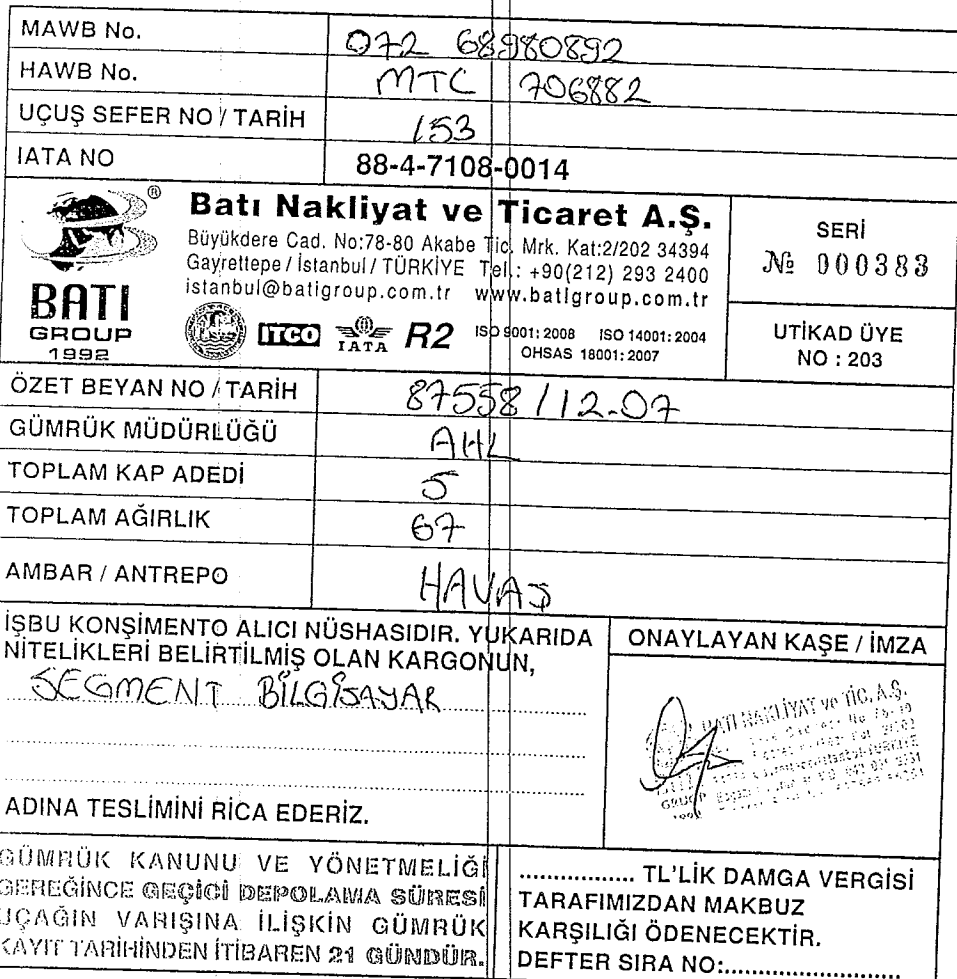 MAWB No. 072 68980892
HAWB No. MTC 706882
UÇUŞ SEFER NO / TARİH 153
IATA NO 88-4-7108-0014
BATI
GROUP
1992
®
Batı Nakliyat ve Ticaret A.Ş.
Büyükdere Cad. No:78-80 Akabe Tic. Mrk. Kat:2/202 34394
Gayrettepe / İstanbul / TÜRKİYE Tel.: +90(212) 293 2400
istanbul@batigroup.com.tr www.batigroup.com.tr
ITCO IATA R2 ISO 9001: 2008 ISO 14001: 2004
OHSAS 18001: 2007
SERİ
№ 000383
UTİKAD ÜYE
NO : 203
ÖZET BEYAN NO / TARİH 87558 / 12.07
GÜMRÜK MÜDÜRLÜĞÜ AHL
TOPLAM KAP ADEDİ 5
TOPLAM AĞIRLIK 67
AMBAR / ANTREPO HAVAŞ
İŞBU KONŞİMENTO ALICI NÜSHASIDIR. YUKARIDA
NİTELİKLERİ BELİRTİLMİŞ OLAN KARGONUN,
SEGMENT BİLGİSAYAR
ADINA TESLİMİNİ RİCA EDERİZ.
ONAYLAYAN KAŞE / İMZA
BATI NAKLİYAT ve TİC. A.Ş.
GÜMRÜK KANUNU VE YÖNETMELİĞİ
GEREĞİNCE GEÇİCİ DEPOLAMA SÜRESİ
UÇAĞIN VARIŞINA İLİŞKİN GÜMRÜK
KAYIT TARİHİNDEN İTİBAREN 21 GÜNDÜR.
................. TL'LİK DAMGA VERGİSİ
TARAFIMIZDAN MAKBUZ
KARŞILIĞI ÖDENECEKTİR.
DEFTER SIRA NO:..........................